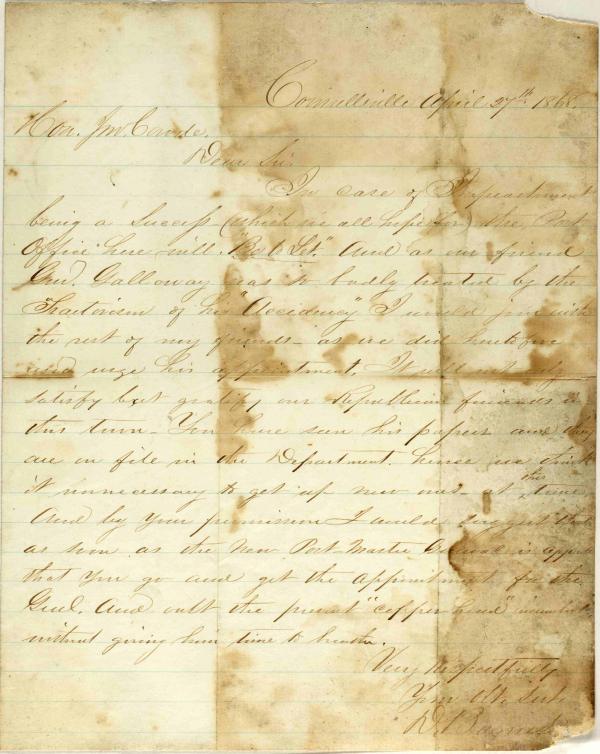 Connellsville April 27th 1868.
Hon. Jno Covode.
Dear Sir.
In case of Impeachment
being a Success (which we all hope for) the Post
Office here will "Be to Let." And as our friend
Genl. Galloway was so badly treated by the
Tractorism of his "Accidency" I would join with
the rest of my friends – as we did heretofore
and urge his appointment. It will not only
satisfy but gratify our Republican friends in
this town – You have seen his papers and they
are on file in the Department. hence we think
it unnecessary to get up new ones – at this time,
And by your permission I would suggest that
as soon as the New Post Master General is
that you go and get the appointment for the
Genl. And oust the present "copper head"
without giving him time to breathe.
Very Respectfully
Your Obt. Servt.